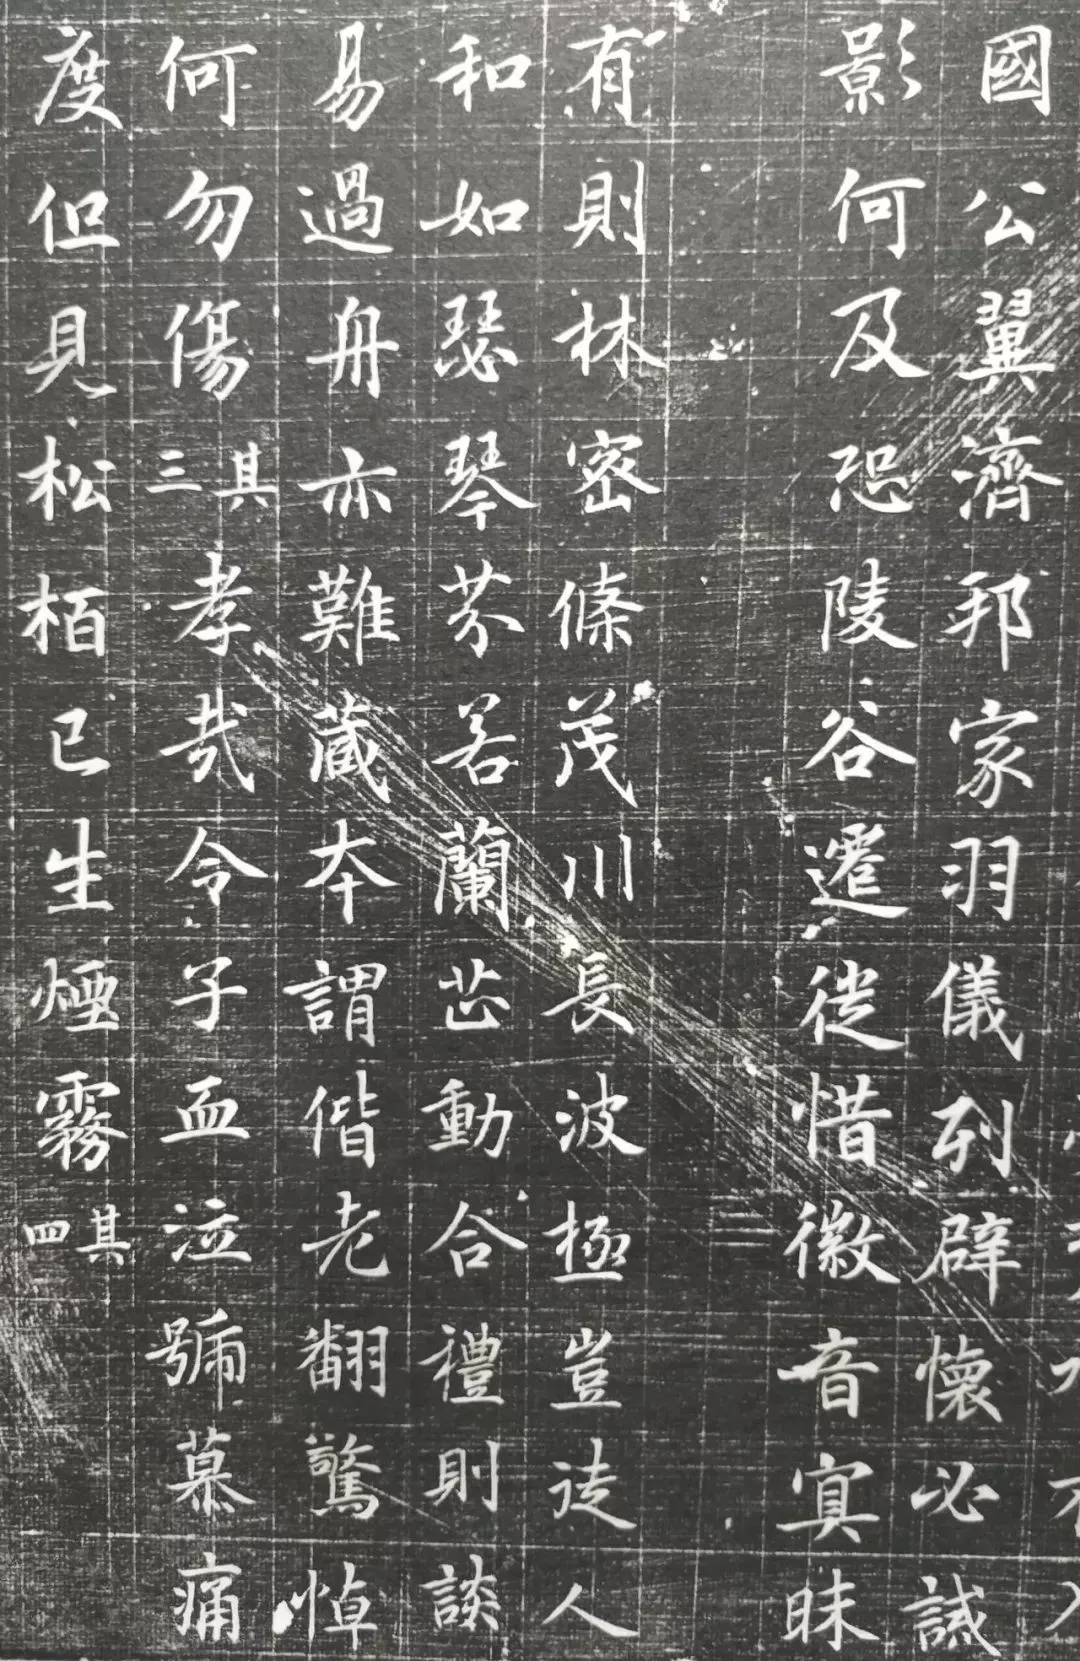 國公翼濟邦家羽儀列辟懷必誡
影何及恐陵谷遷徙惜徽音冥昧
有則林密條茂川長波極豈徒人
和如瑟琴芬若蘭芷動合禮則談
易過舟亦難藏夲謂偕老翻驚悼
何勿傷其三孝哉令子血泣號慕痛
度但見松栢已生煙霧其四